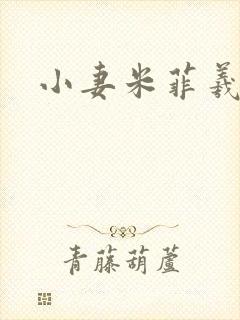 小妻米菲羲
青藤葫蘆